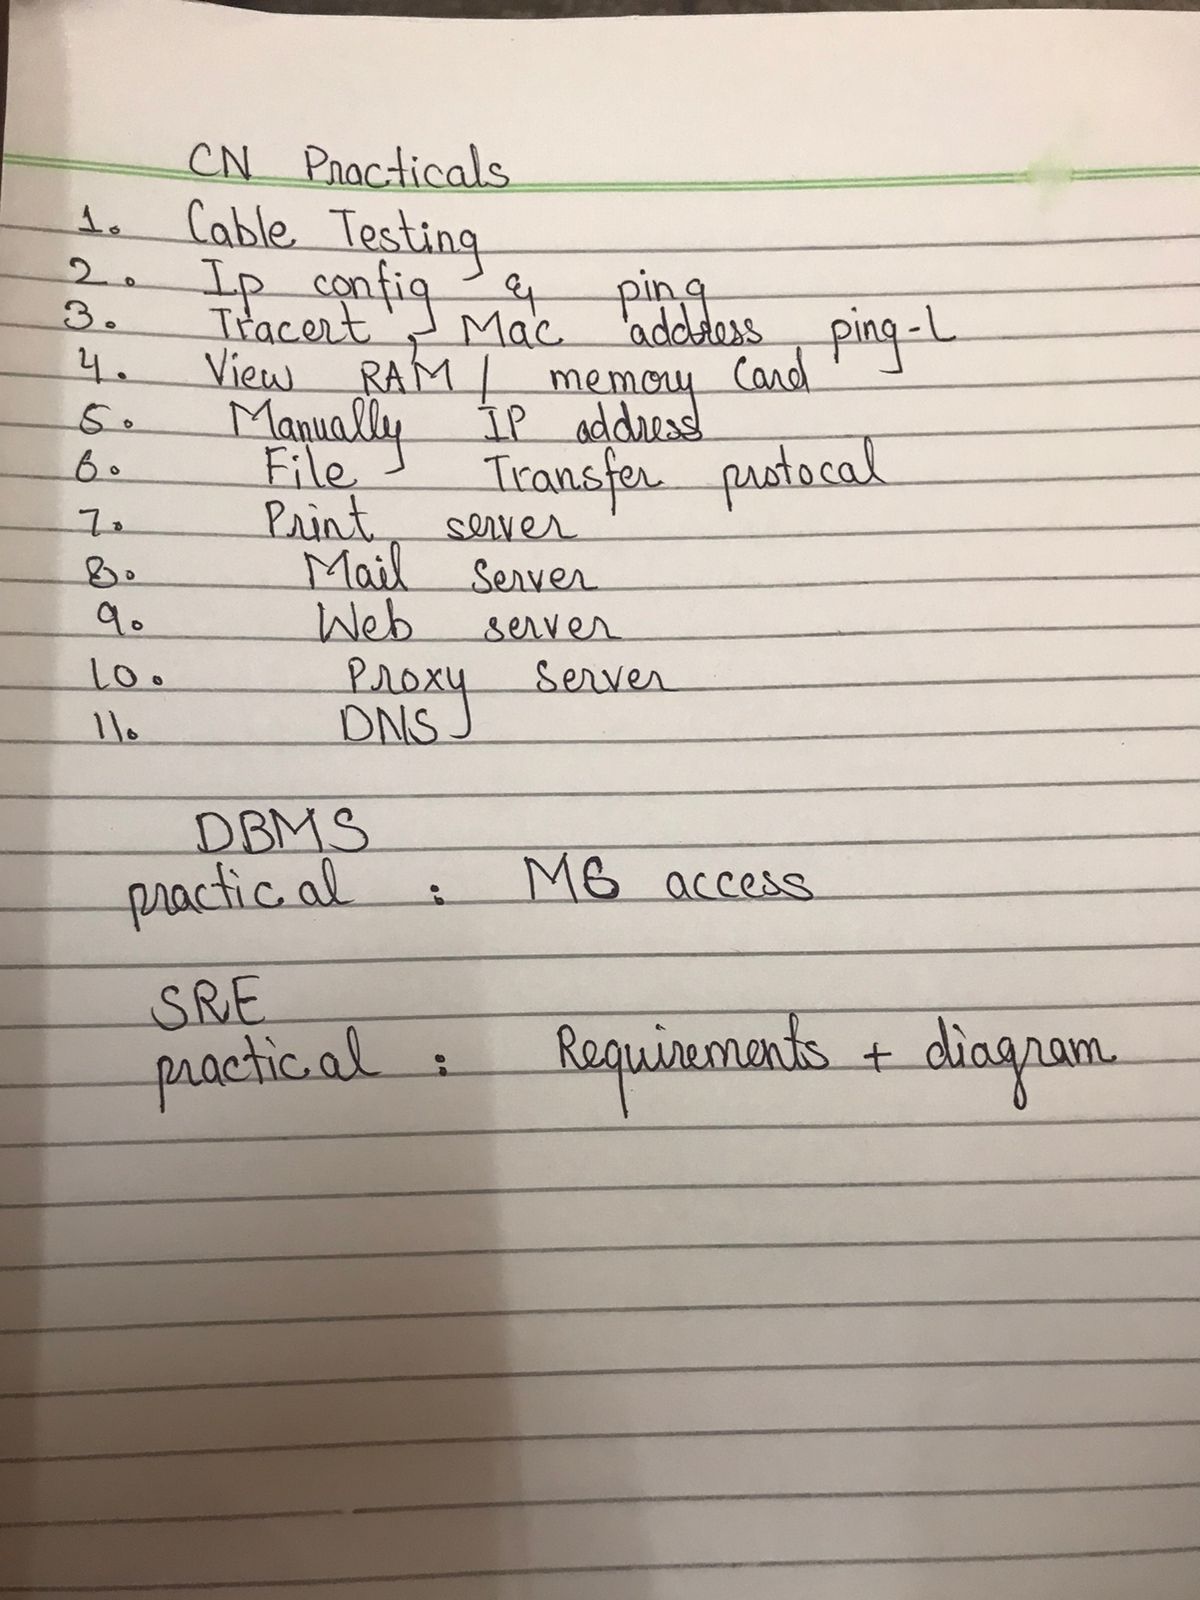 CN Practicals
1. Cable Testing
2. Ip config & ping
3. Tracert, Mac address, ping-l
4. View RAM / memory Card
5. Manually IP address
6. File Transfer protocal
7. Print server
8. Mail Server
9. Web server
10. Proxy Server
11. DNS
DBMS
practical : MS access
SRE
practical : Requirements + diagram